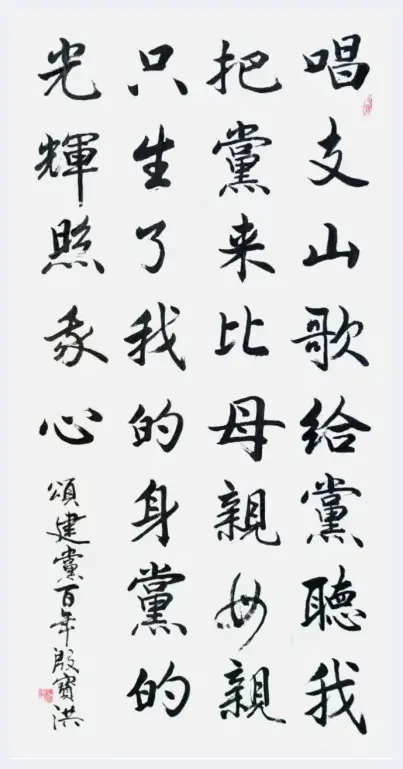 唱支山歌給黨聽我
把黨来比母親母親
只生了我的身黨的
光輝照我心
頌建黨百年殷寶洪